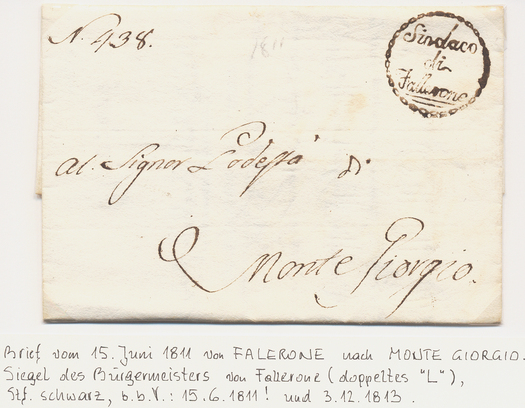 N. 438.
1811
Sindaco
di
Fallerone
Al. Signor Podestà di
Monte Giorgio.
Brief vom 15. Juni 1811 von FALERONE nach MONTE GIORGIO.
Siegel des Bürgermeisters von Fallerone (doppeltes "L"),
Stf. schwarz, b.b.V.: 15.6.1811! und 3.12.1813.